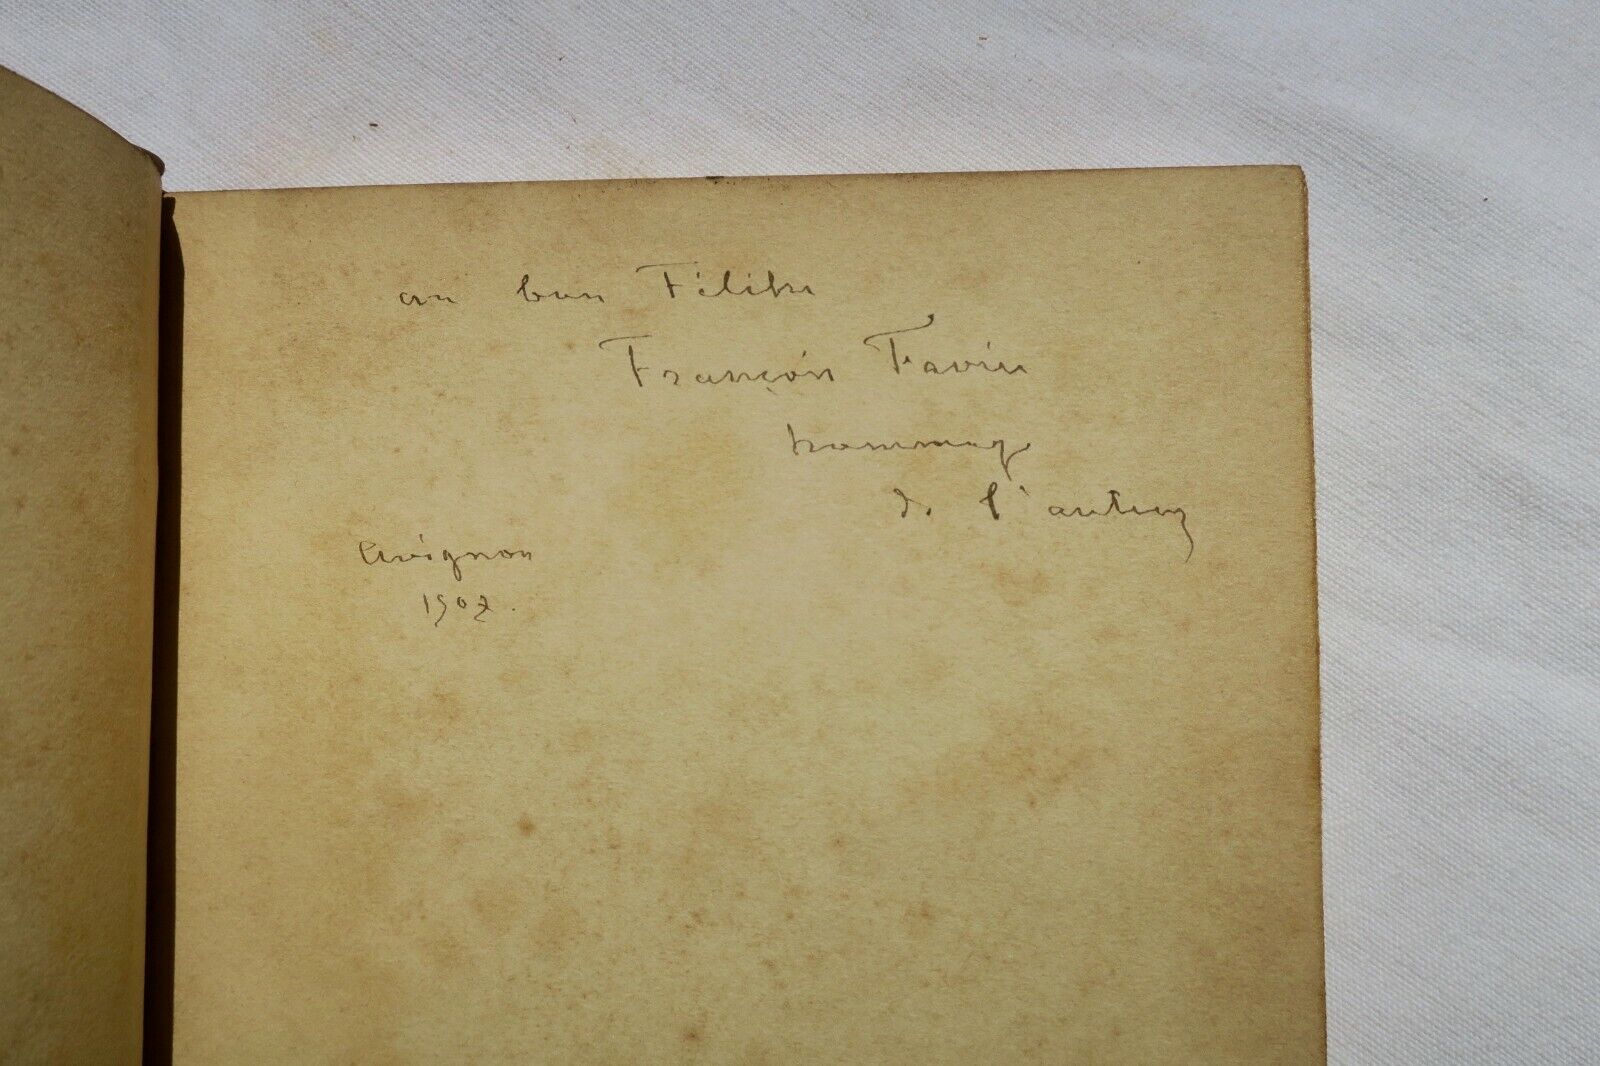 au bon Félibre
François Favier
hommage
de l'auteur
Avignon
1907.